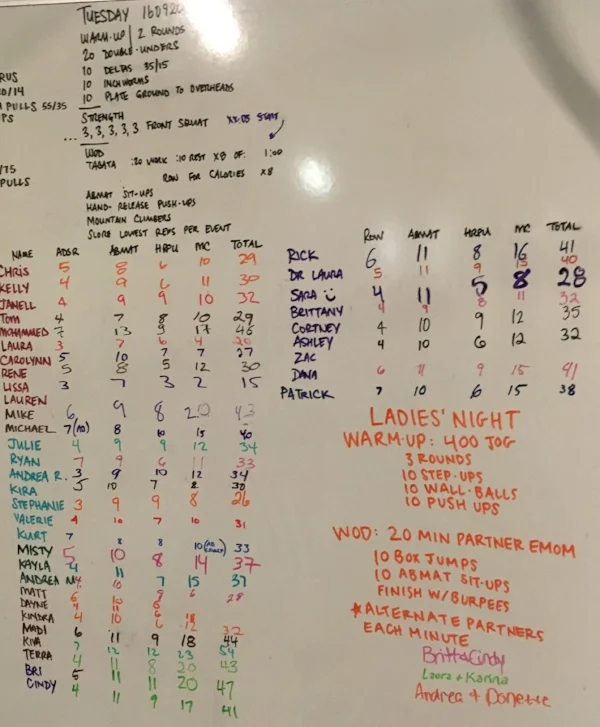 TUESDAY 160920
WARM-UP | 2 ROUNDS
20 DOUBLE-UNDERS
10 DELTAS 35/15
10 INCHWORMS
10 PLATE GROUND TO OVERHEADS
STRENGTH
... 3, 3, 3, 3, 3 FRONT SQUAT START
WOD
TABATA :20 WORK :10 REST X8 OF: 1:00
ROW FOR CALORIES X8
ABMAT SIT-UPS
HAND-RELEASE PUSH-UPS
MOUNTAIN CLIMBERS
SCORE LOWEST REPS PER EVENT
RUS
/14
PULLS 55/35
PS
/75
PULLS
NAME ABMAT HRPU MC TOTAL
CHRIS 5 8 6 10 29
KELLY 4 9 6 11 30
JANELL 4 9 9 10 32
TOM 4 7 8 10 29
MOHAMMED 7 13 9 17 46
LAURA 3 7 6 4 20
CAROLYNN 5 10 7 7 27
RENE 5 8 5 12 30
LISSA 3 7 3 2 15
LAUREN
MIKE 6 9 8 20 43
MICHAEL 7 8 10 15 40
JULIE 4 9 9 12 34
RYAN 7 9 6 11 33
ANDREA R. 3 9 10 12 34
KIRA 5 10 7 8 30
STEPHANIE 3 9 9 8 26
VALERIE 4 10 7 10 31
KURT 7 8 8
MISTY 5 10 8 10 33
KAYLA 4 11 8 14 37
ANDREA M. 10 7 15 37
MATT 6 10 9 6 28
DAYNE 4 11 8
KINDRA 4 10 6 18
MADI 6 11 9 12 32
KIVA 7 12 12 18 44
TERRA 4 11 8 23 54
BRI 5 11 11 20 43
CINDY 4 11 9 20 47
17 41
ROW ABMAT HRPU MC TOTAL
RICK 6 11 8 16 41
DR LAURA 5 11 9 15 40
SARA 4 11 5 8 28
BRITTANY 4 9 8 11 32
CORTNEY 4 10 9 12 35
ASHLEY 4 10 6 12 32
ZAC
DANA 6 11 9 15 41
PATRICK 7 10 6 15 38
LADIES' NIGHT
WARM-UP: 400 JOG
3 ROUNDS
10 STEP-UPS
10 WALL-BALLS
10 PUSH UPS
WOD: 20 MIN PARTNER EMOM
10 BOX JUMPS
10 ABMAT SIT-UPS
FINISH W/BURPEES
*ALTERNATE PARTNERS
EACH MINUTE
Britt & Cindy
Laura + Karina
Andrea + Donette